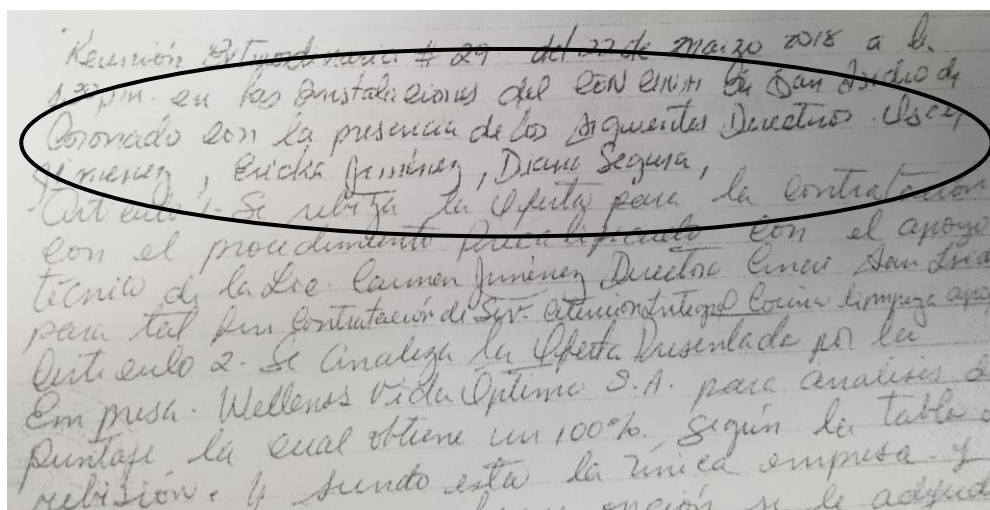 Reunión Extraordinaria # 29 del 22 de marzo 2018 a la
en las Instalaciones del CEN CINAI de San Isidro de
Coronado con la presencia de los siguientes Directivos. Oscar
Jimenez, Ericka Jiménez, Diana Segura,
Articulo 1- Se rebiza la oferta para la contratación
con el procedimiento Precalificado con el apoyo
técnico de la Lic. Carmen Jiménez Directora Cinai San Isidro
para tal fin Contratación de Serv. Atención Integral Cocina limpieza
Articulo 2- Se analiza la oferta Presentada por la
Empresa. Wellenss Vida Optima S.A. para analisis de
puntaje la cual obtiene un 100%. Según la tabla
rebisión. y siendo esta la única empresa y
opción se le adjud